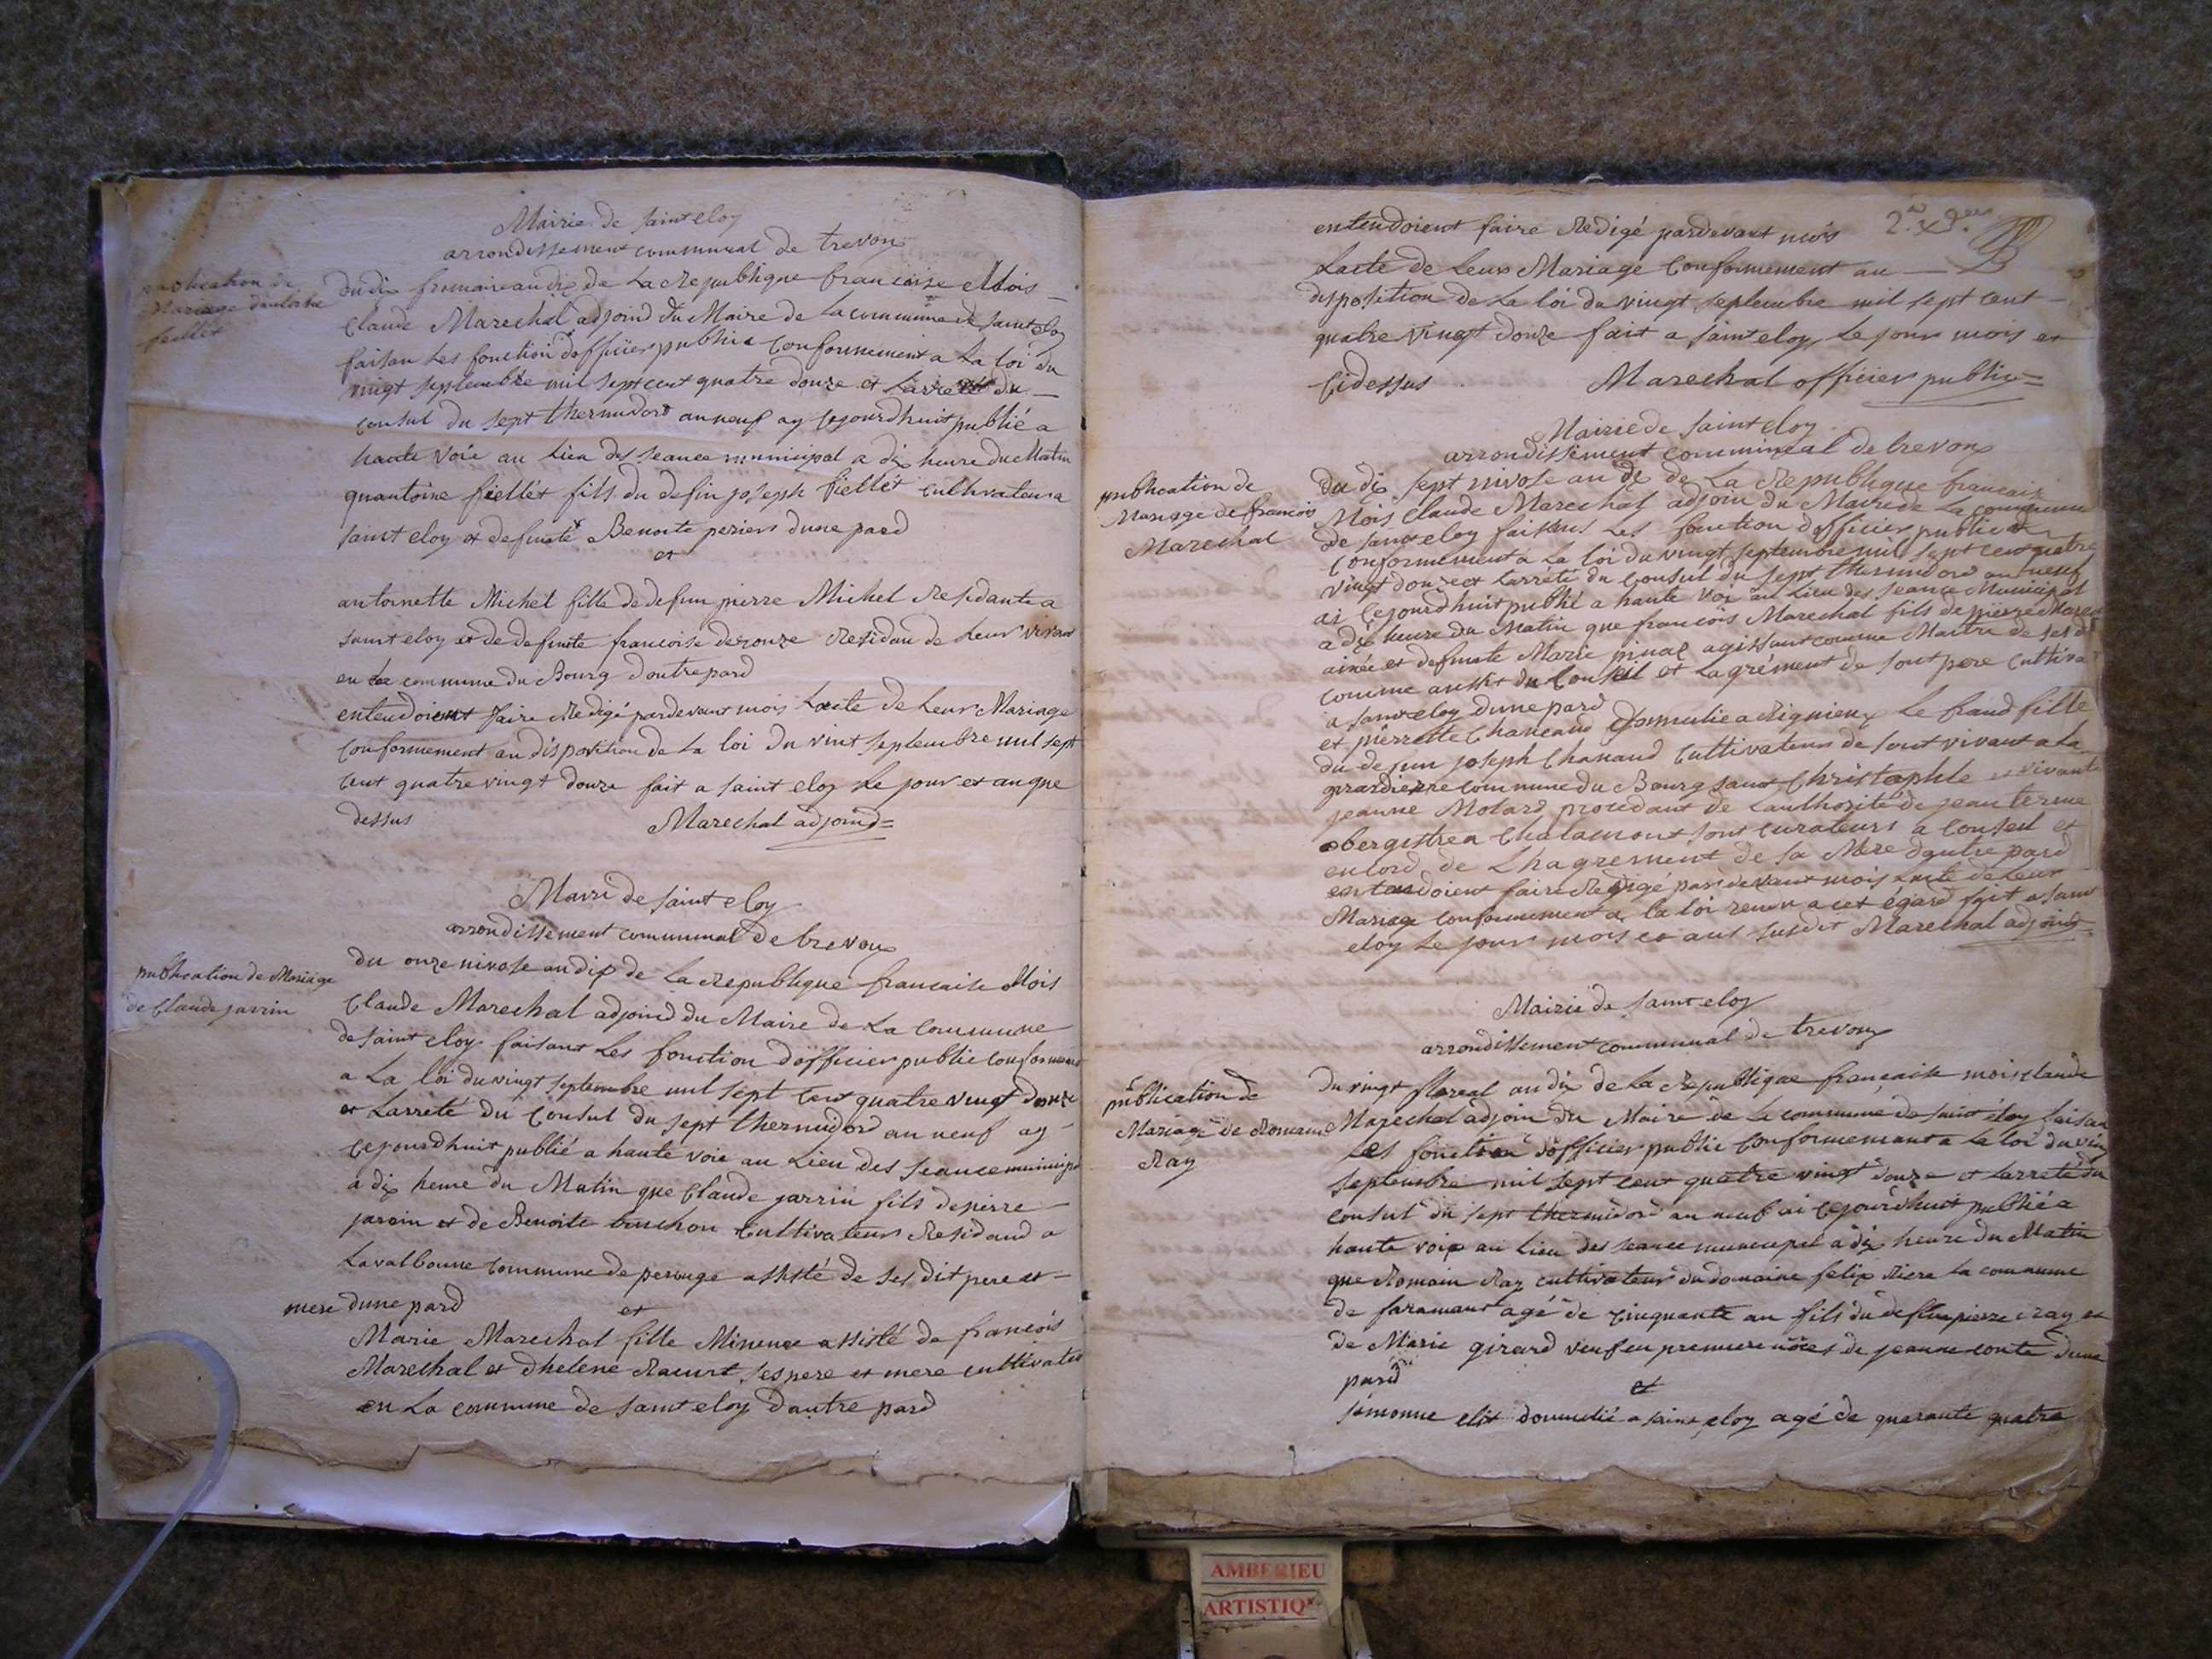 Mairie de saint eloy
arrondissement communal de trevoux
publication de
Mariage dantoine
fiellet
du dix frimaire an dix de La republique francaise Mois
Claude Marechal adjoind du Maire de La commune de saint eloy
faisan Les fonction dofficier public Conformement a La loi du
vingt septembre mil sept cent quatre douze et Larreté du
Consul du sept thermidord an neuf ay Cejourdhuit publié a
haute voie au Lieu des seance municipal a dix heure du Matin
quantoine fiellet fils du defin joseph fiellet Cultivateur a
saint eloy et defuncte Benoite periers dune pard
et
antoinette Michel fille de defun pierre Michel Residante a
saint eloy et de defunte francoise derouze Residan de Leur vivant
en La commune du Bourg Doutre pard
entendoient faire Redigé pardevant mois Lacte de Leur Mariage
Conformement au disposition de La loi du vint septembre mil sept
Cent quatre vingt douze fait a saint eloy Le jour et an que
dessus Marechal adjoind
Mairi de saint eloy
arrondissement communal de trevoux
publication de Mariage
de Claude jarrin
du onze nivose an dix de La Republique francaise Mois
Claude Marechal adjoind du Maire de La Commune
de saint eloy faisant Les fonction dofficier public conformement
a La loi du vingt septembre mil sept Cent quatre vingt douze
et Larreté du Consul du sept thermidord an neuf ay
Cejourdhuit publié a haute voie au Lieu des seance municipal
a dix heure du Matin que Claude jarrin fils de pierre
jarrin et de Benoite bouchon Cultivateur Residand a
Lavalbonne Commune de perouge assisté de ses dit pere et
mere dune pard et
Marie Marechal fille Mineure assisté de francois
Marechal et dhelene Racurt ses pere et mere cultivateur
en La commune de saint eloy Dautre pard
2.
entendoient faire Redigé pardevant mois
Lacte de Leur Mariage Conformement au
disposition de La loi du vingt septembre mil sept cent
quatre vingt douze fait a saint eloy Le jour mois et
Cidessus Marechal officier public
Mairie de saint eloy
arrondissement communal de trevoux
publication de
Mariage de francois
Marechal
du dix sept nivose an dix de La Republique francaise
Mois Claude Marechal adjoin du Maire de La commune
de saint eloy faisant Les fonction dofficier public
Conformement a La loi du vingt septembre mil sept cent quatre
vingt douze et Larreté du Consul du sept thermidord an neuf
ai Cejourdhuit publié a haute voi au Lieu des seance Municipal
a dix heure du Matin que francois Marechal fils de pierre Marechal
ainée et defunte Marie pinal agissant comme Maitre de ses
comme aussit du Conseil et Lagrément de sout pere Cultivateur
a saint eloy dune pard
et pierrette Chanand Domeilie a Rignieux Le frand fille
du defun joseph Chanand Cultivateur de sont vivant a La
girardierre Commune du Bourg saint Christophle et vivante
jeanne Molard procedant de Lauthorité de jean terme
obergistre a Chalamont sont Curateur a Conseil et
encord de Lhagrement de sa Mere dautre pard
entendoient faire Redigé pardevant mois Lacte de Leur
Mariage conformement a la loi rendu a cet égard fait a saint
eloy Le jour mois et ans susdit Marechal adjoind
Mairie de saint eloy
arrondissement communal de trevoux
publication de
Mariage de Romain
Ray
Du vingt floreal an dix de La Republique francaise mois Claude
Marechal adjoin du Maire de La commune de saint éloy faisan
Les fonction dofficier public Conformemant a La loi du vingt
septembre mil sept cent quatre vingt douze et Larreté du
Consul du sept thermidord an neuf ai Cejourdhuit publié a
haute voix au Lieu des seance municipal a dix heure du Matin
que Romain Ray cultivateur du domaine felix Riere La commune
de faramant agé de cinquante an fils du defun pierre Ray et
de Marie girard veuf en premiere nôces de jeanne conte dune
pard
et
simonne elix domicilié a saint eloy agé de quarante quatre
AMBERIEU
ARTISTIQ*